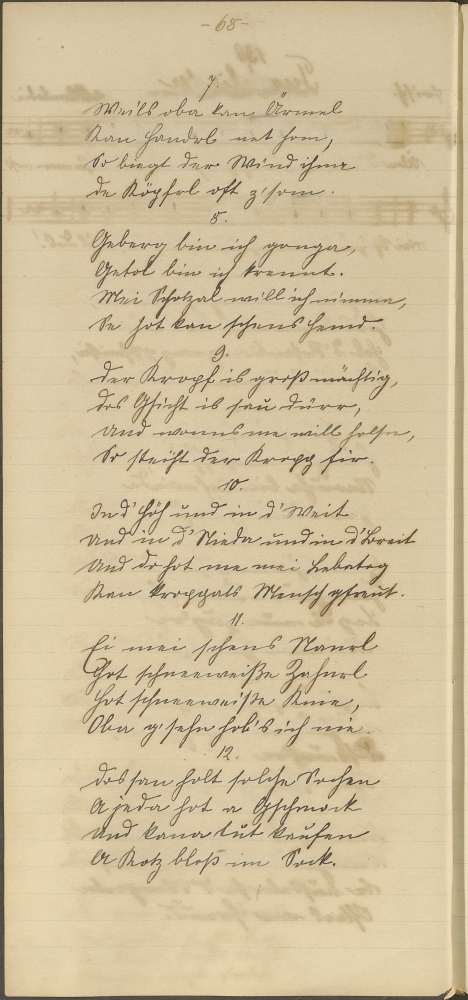 - 68 -
7.
Weils oba kan Ärmel
Kan Handrl net hom,
So biegt der Wind ihna
de Köpferl oft z'som.
8.
Geberg bin ich gonga,
Getol bin ich krennt.
Mei Schotzal will ich nimma,
Se hot kan schens Hemd.
9.
Der Kropf is großmächtig,
Dos Gsicht is sau dürr,
Und wonns me will holsn,
So steiht der Kropf fir.
10.
In d' Höh und in d' Weit
Und in d' Nieda und in d' Breit
Und do hot me mei Lebatog
Kan kroppats Mensch gfreut.
11.
Ei mei schens Nanrl
Hot schneeweiße Zahnrl
Hot schneeweiße Knie,
Oba g'sehn hob's ich nie.
12.
Dos san holt solche Sochen
A jeda hot a Gschmock
Und kana tut kaufen
A Kotz bloß im Sock.